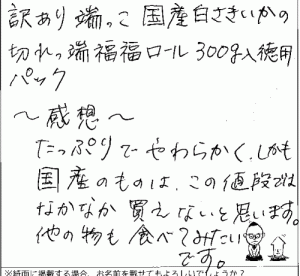 訳あり端っこ国産白さきいかの
切れっ端福福ロール300g入徳用
パック
～感想～
たっぷりでやわらかく、しかも
国産のものは、この値段では
なかなか買えないと思います。
他の物も食べてみたい
です。
※紙面に掲載する場合、お名前を載せてもよろしいでしょうか？